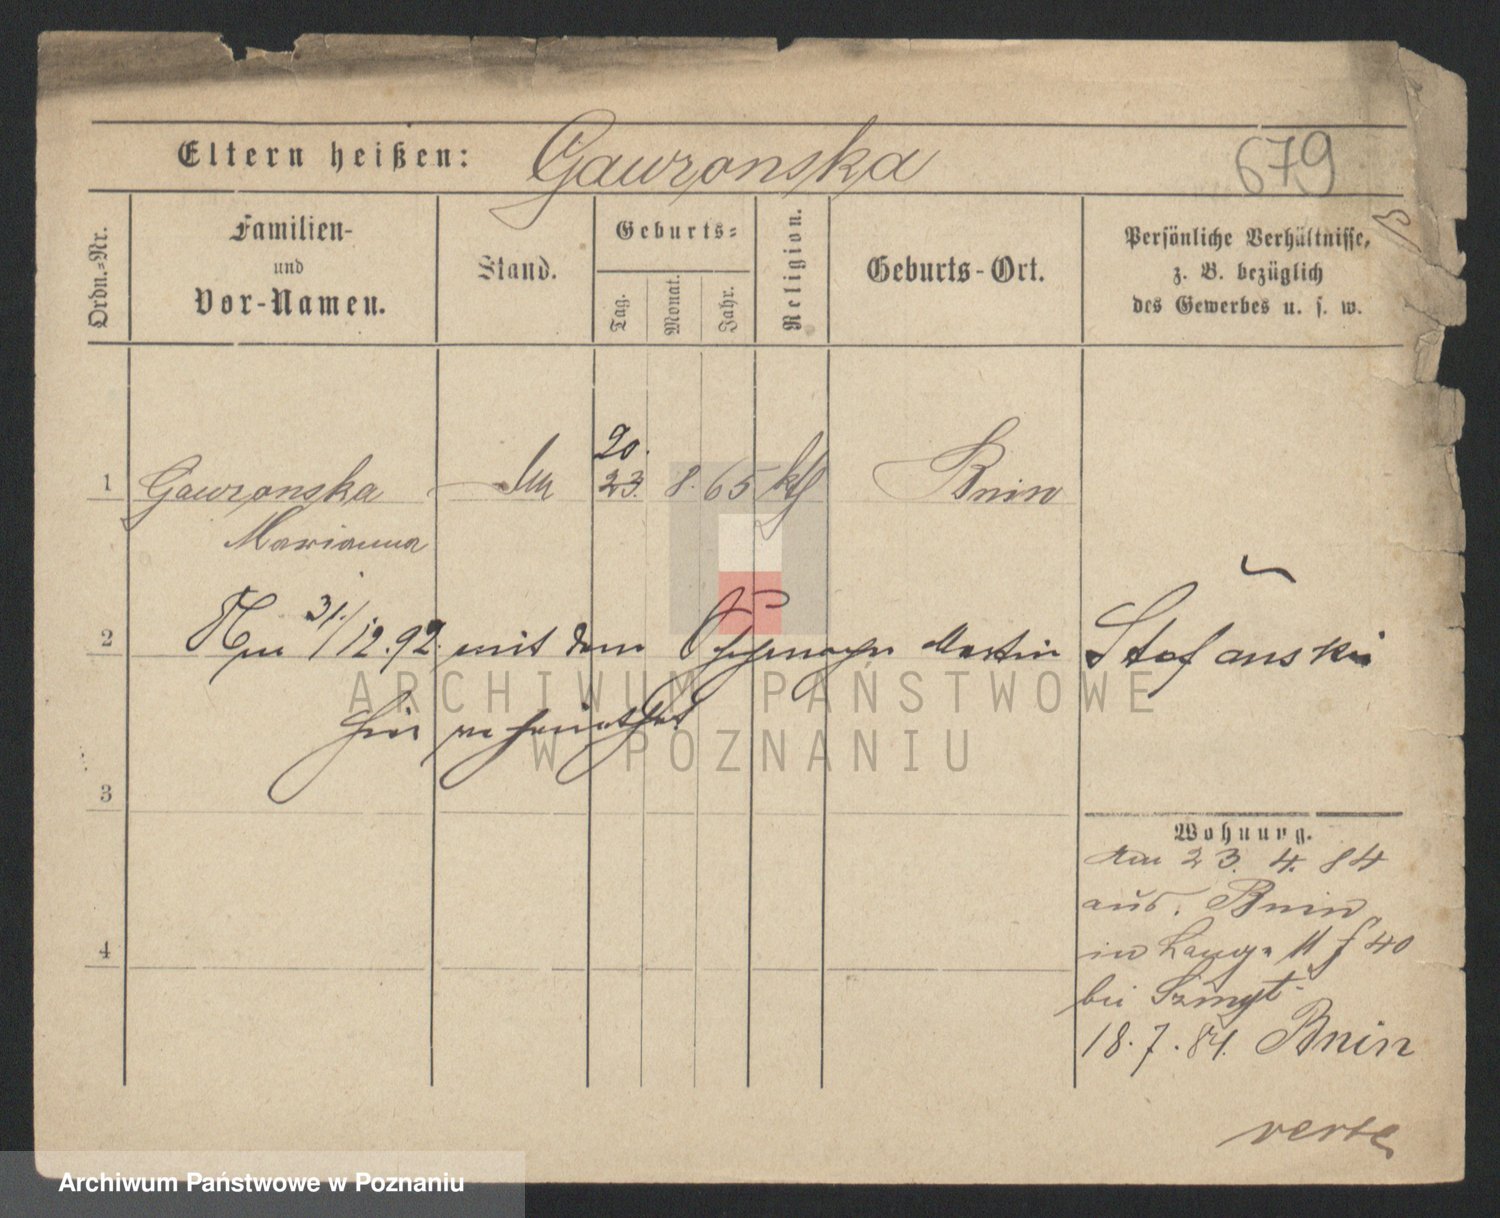 679
Eltern heißen: Gawronska
Ordn.-Nr.
Familien-
und
Vor-Namen.
Stand.
Geburts-
Tag.
Monat.
Jahr.
Religion.
Geburts-Ort.
Persönliche Verhältnisse,
z. B. bezüglich
des Gewerbes u. s. w.
20.
1 Gawronska 23. 8. 65 ktl Bnin
Marianna
2 Am 31./12.92. mit dem Martin Stefanski
hier verheirathet
3
4
Wohnung.
Am 23. 4. 84
aus. Bnin
in Lang. 11 f 40
bei Szmyt.
18.7.84. Bnin
verte
ARCHIWUM PAŃSTWOWE
W POZNANIU
Archiwum Państwowe w Poznaniu